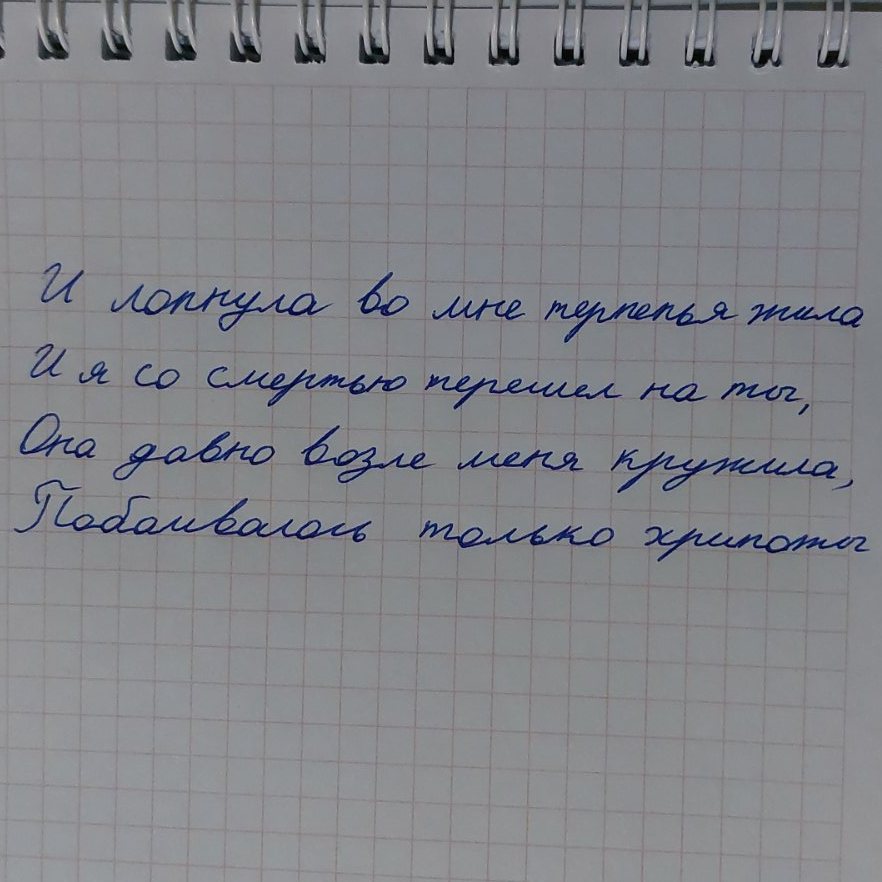 И лопнула во мне терпенья жила
И я со смертью перешел на ты,
Она давно возле меня кружила,
Побаивалась только хрипоты